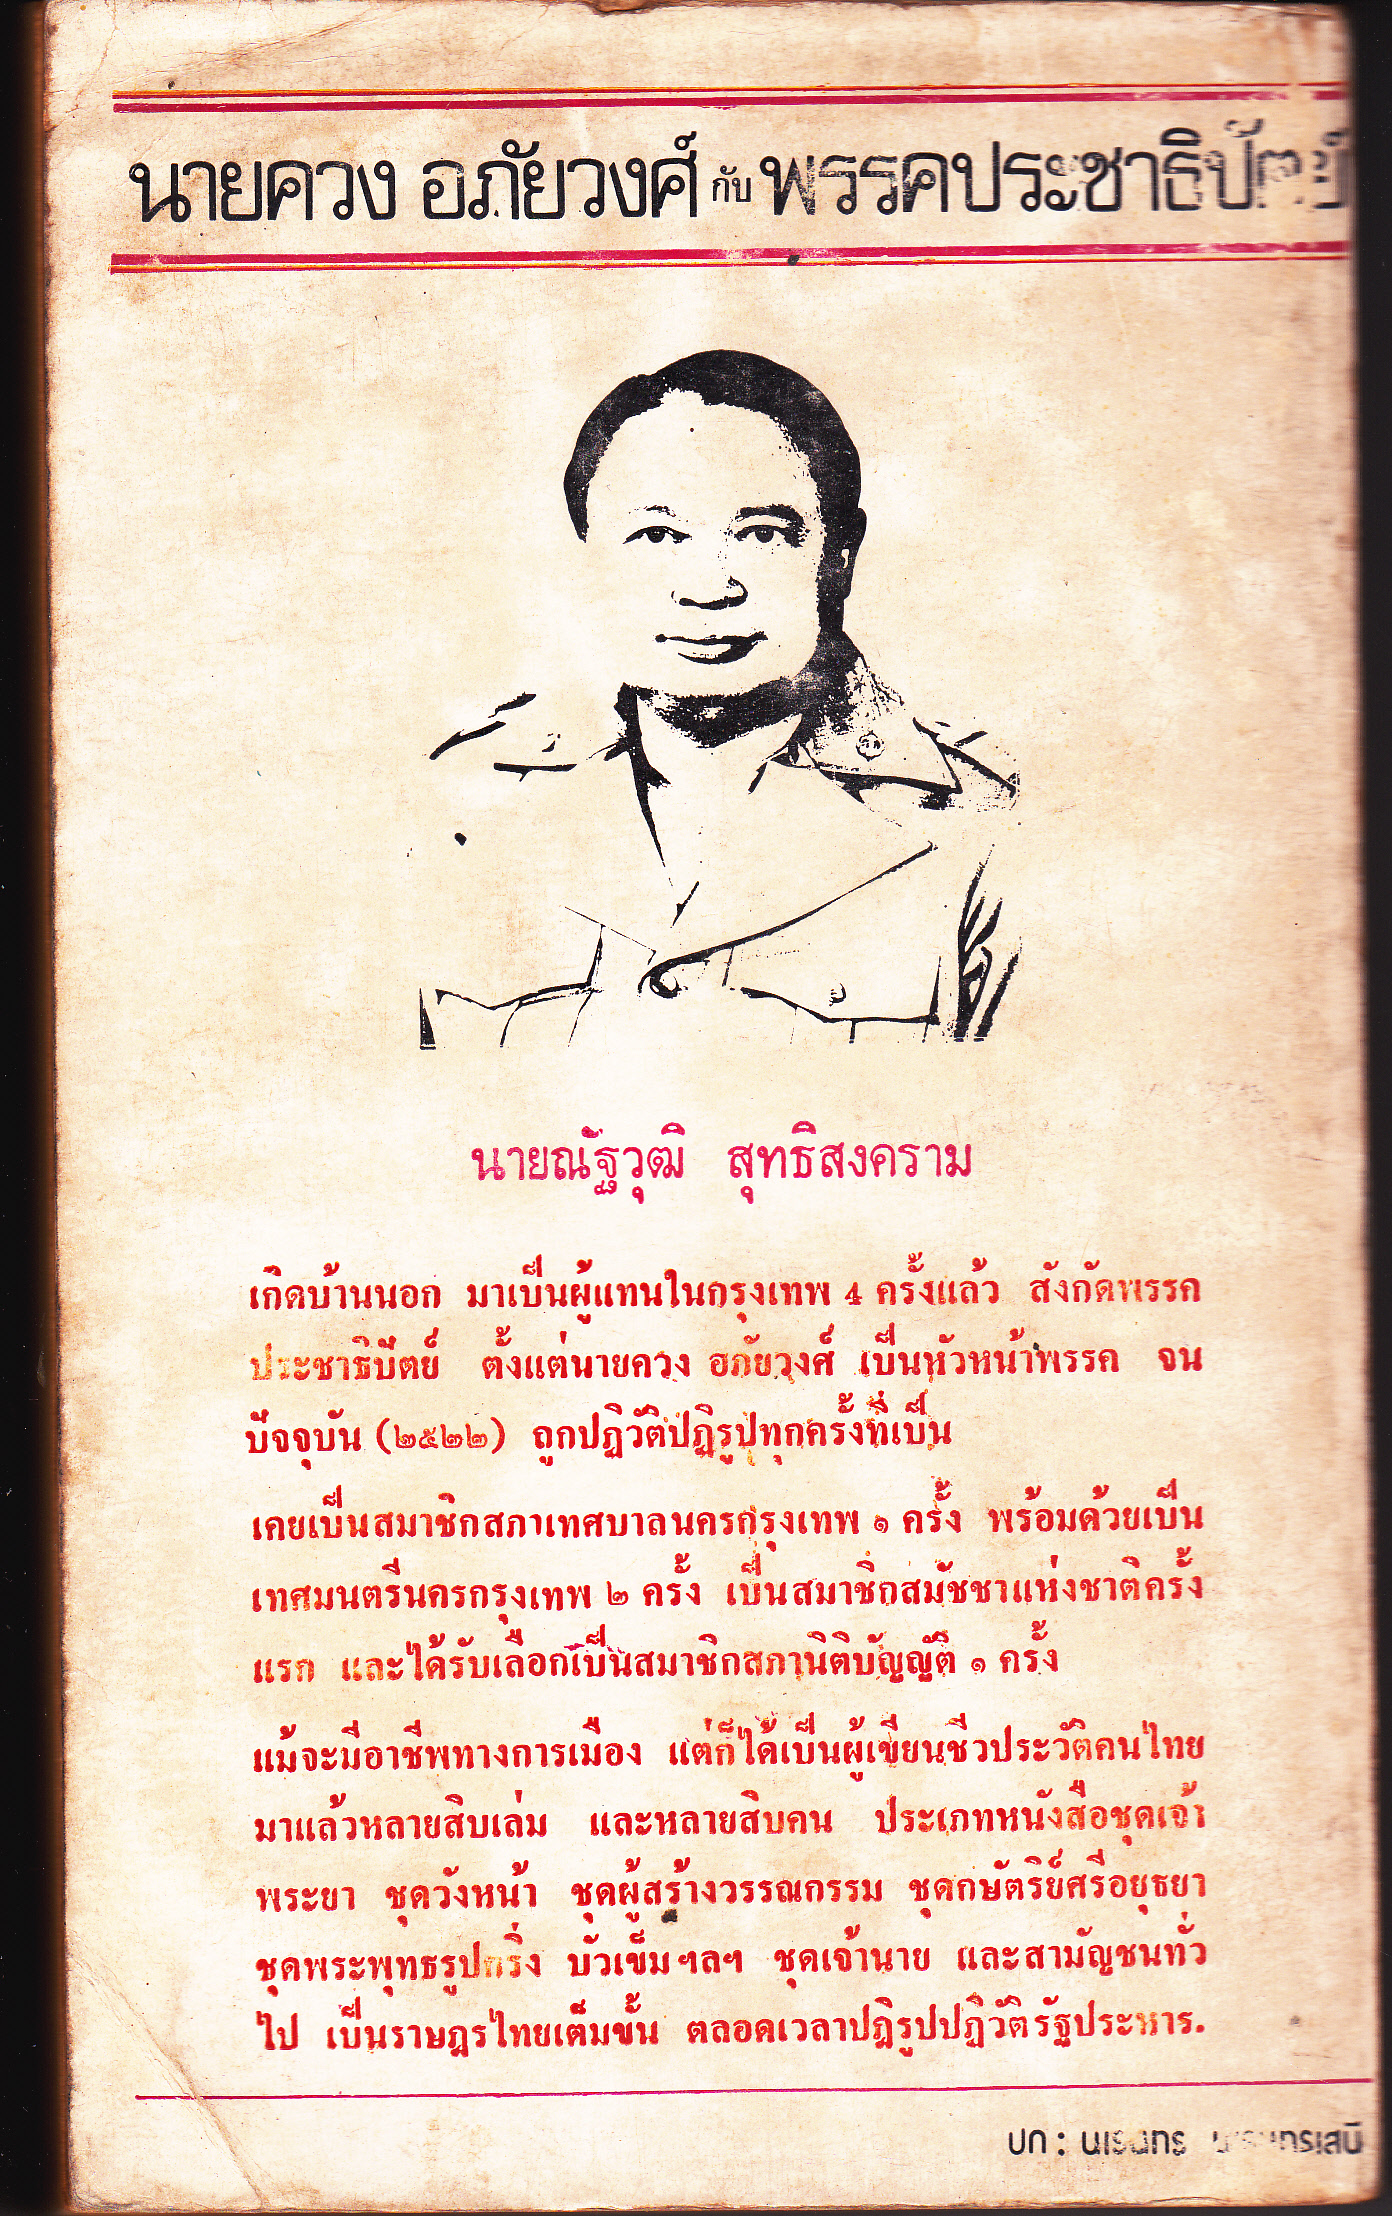 นายควง อภัยวงศ์ กับ พรรคประชาธิปัตย์
นายณัฐวุฒิ สุทธิสงคราม
เกิดบ้านนอก มาเป็นผู้แทนในกรุงเทพ 4 ครั้งแล้ว สังกัดพรรค
ประชาธิปัตย์ ตั้งแต่นายควง อภัยวงศ์ เป็นหัวหน้าพรรค จน
ปัจจุบัน (๒๕๒๒) ถูกปฏิวัติปฏิรูปทุกครั้งที่เป็น
เคยเป็นสมาชิกสภาเทศบาลนครกรุงเทพ ๑ ครั้ง พร้อมด้วยเป็น
เทศมนตรีนครกรุงเทพ ๒ ครั้ง เป็นสมาชิกสมัชชาแห่งชาติครั้ง
แรก และได้รับเลือกเป็นสมาชิกสภานิติบัญญัติ ๑ ครั้ง
แม้จะมีอาชีพทางการเมือง แต่ก็ได้เป็นผู้เขียนชีวประวัติคนไทย
มาแล้วหลายสิบเล่ม และหลายสิบคน ประเภทหนังสือชุดเจ้า
พระยา ชุดวังหน้า ชุดผู้สร้างวรรณกรรม ชุดกษัตริย์ศรีอยุธยา
ชุดพระพุทธรูปกริ่ง บัวเข็ม ฯลฯ ชุดเจ้านาย และสามัญชนทั่ว
ไป เป็นราษฎรไทยเต็มขั้น ตลอดเวลาปฏิรูปปฏิวัติรัฐประหาร.
ปก : นเรนทร